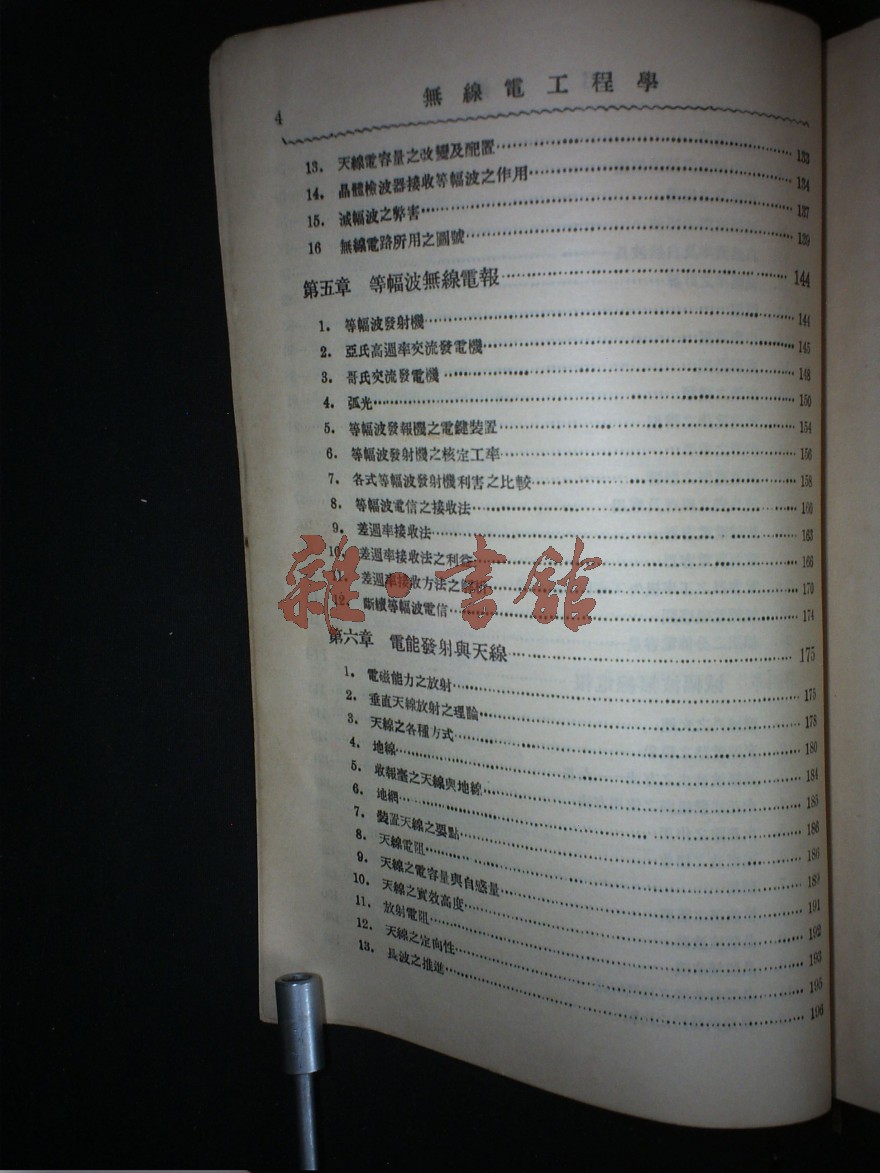 4
無線電工程學
13. 天線電容量之改變及配置 133
14. 晶體檢波器接收等幅波之作用 134
15. 減幅波之弊害 137
16 無線電路所用之圖號 139
第五章 等幅波無線電報 144
1. 等幅波發射機 144
2. 亞氏高週率交流發電機 145
3. 哥氏交流發電機 148
4. 弧光 150
5. 等幅波發報機之電鍵裝置 154
6. 等幅波發射機之核定工率 156
7. 各式等幅波發射機利害之比較 158
8. 等幅波電信之接收法 160
9. 差週率接收法 163
10. 差週率接收法之利益 166
11. 差週率接收方法之解析 170
12. 斷續等幅波電信 174
雜·書館
第六章 電能發射與天線 175
1. 電磁能力之放射 175
2. 垂直天線放射之理論 178
3. 天線之各種方式 180
4. 地線 184
5. 收報臺之天線與地線 185
6. 地網 186
7. 裝置天線之要點 186
8. 天線電阻 189
9. 天線之電容量與自感量 191
10. 天線之實效高度 192
11. 放射電阻 193
12. 天線之定向性 195
13. 長波之推進 196